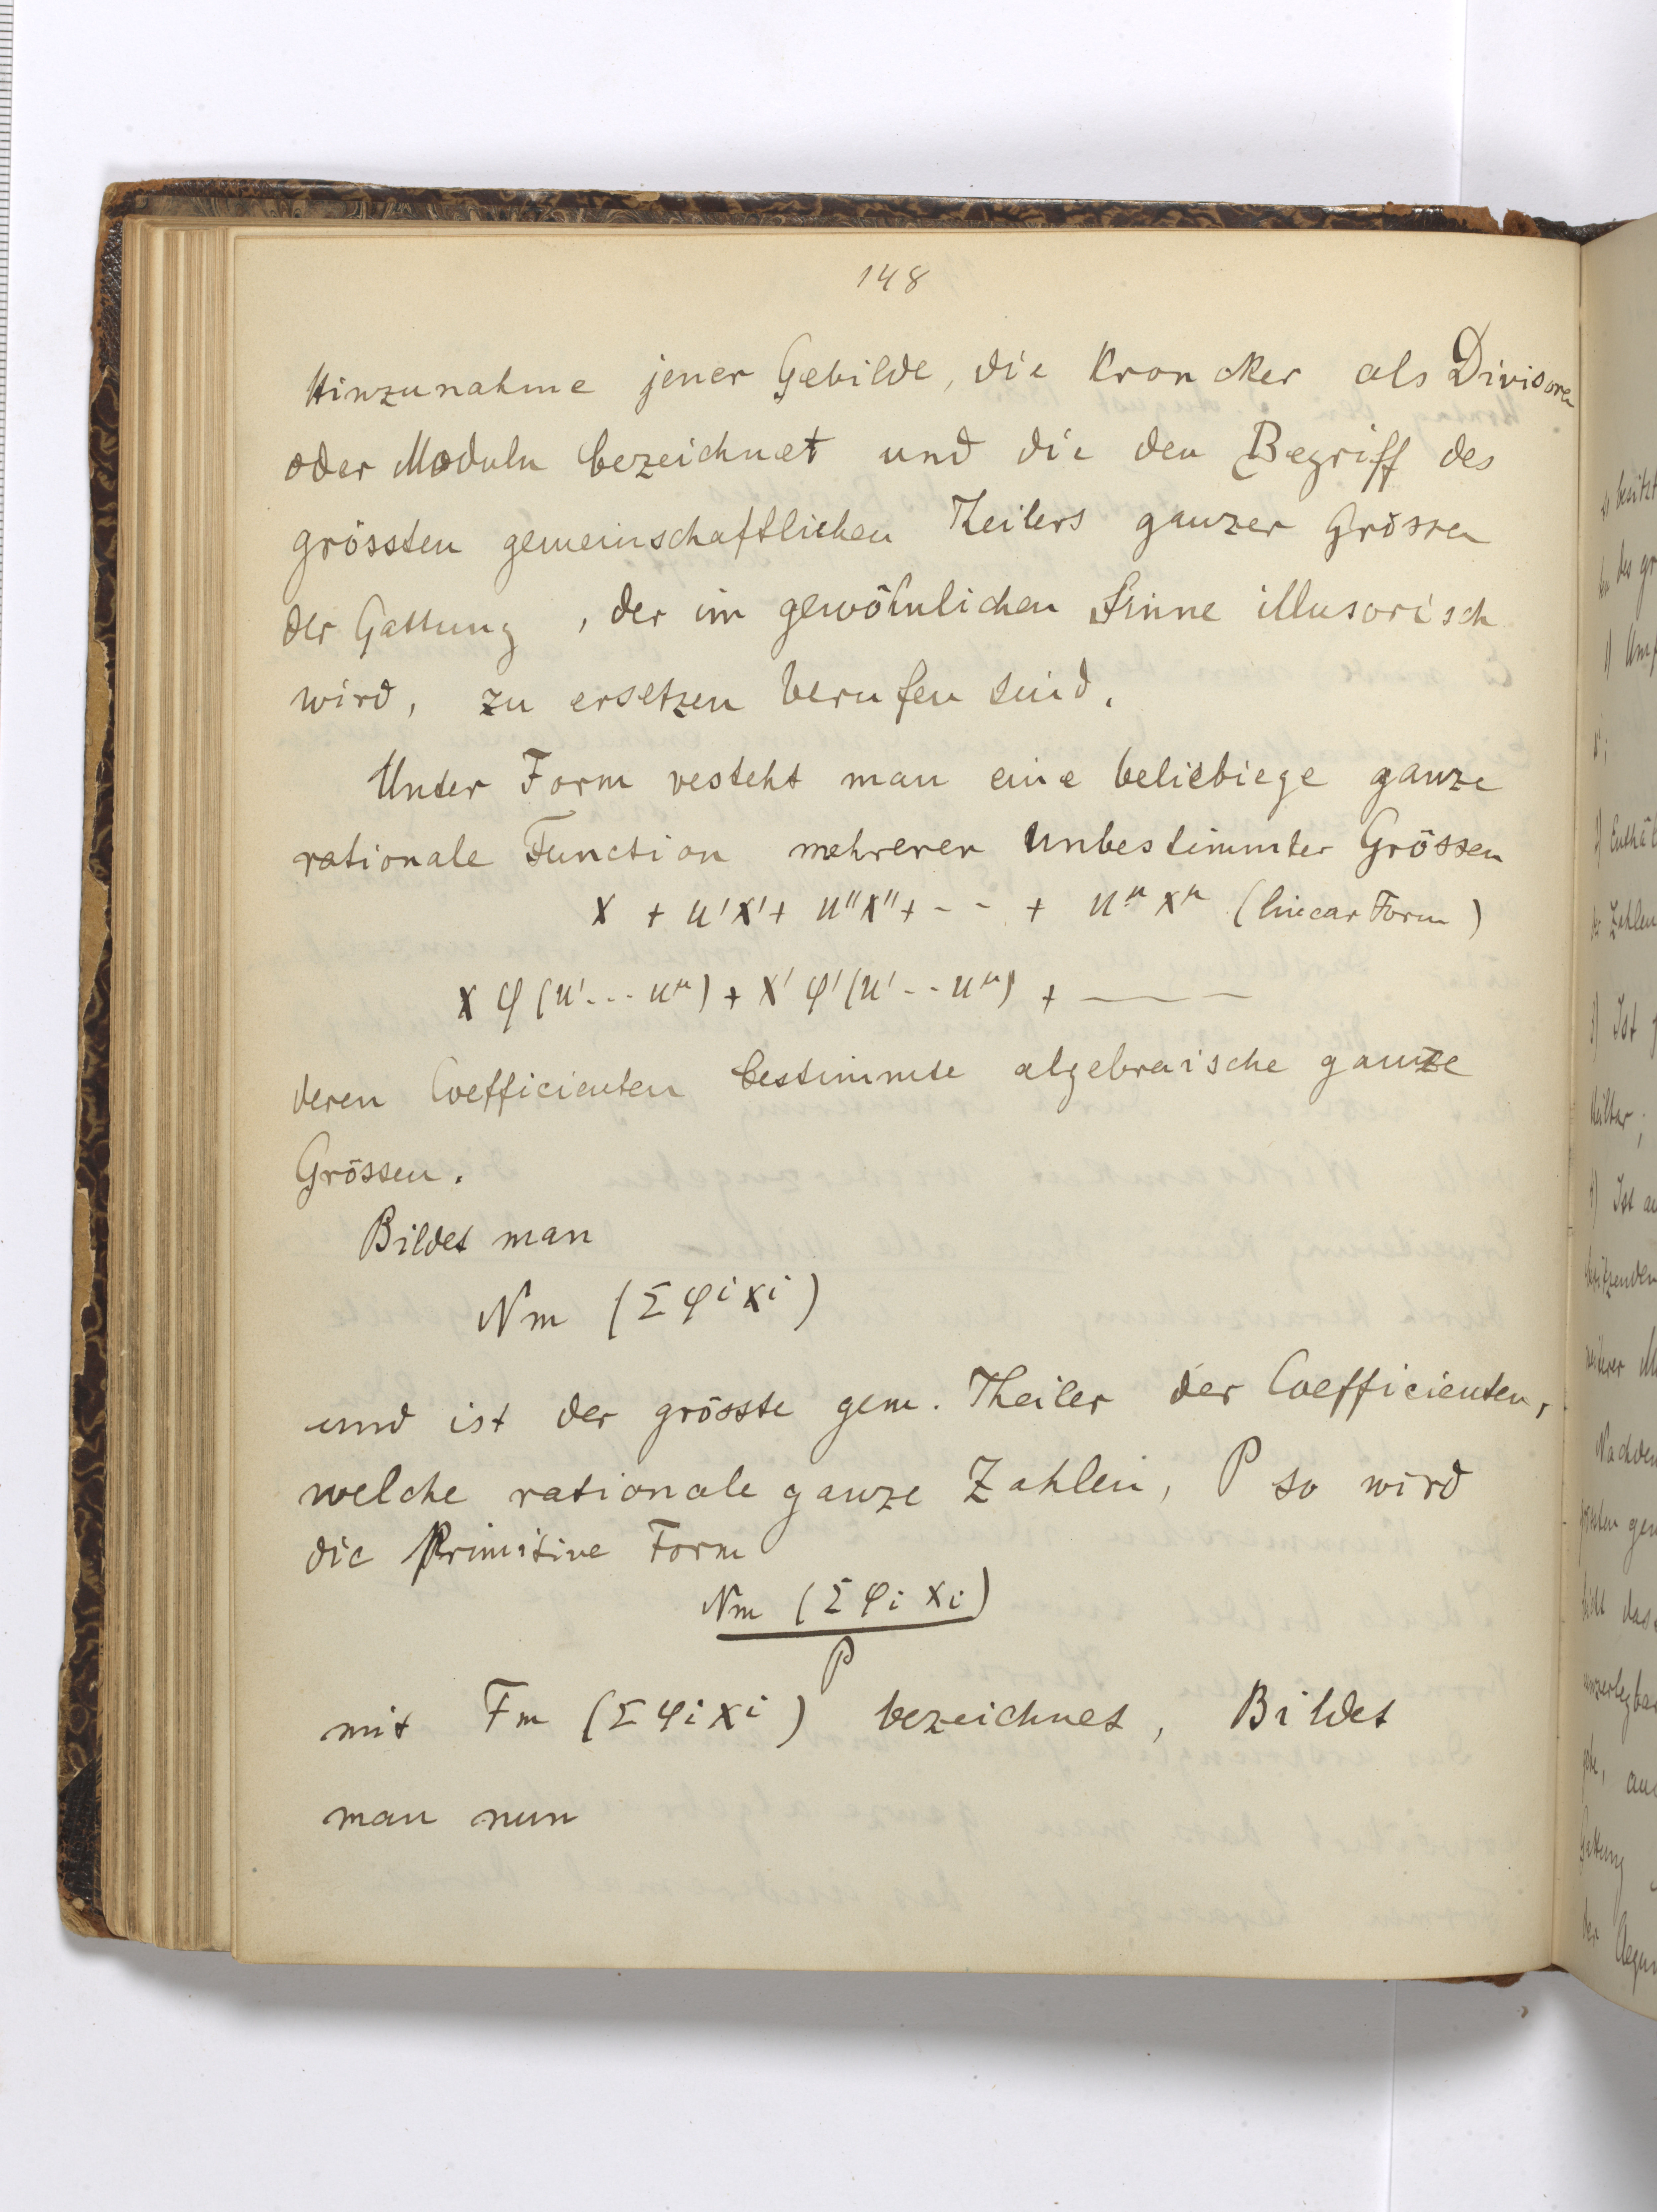 148
Hinzunahme jener Gebilde, die Kroncker als Divisoren
oder Moduln bezeichnet und die den Begriff des
grössten gemeinschaftlichen Theilers ganzer Grössen
der Gattung , der im gewöhnlichen Sinne illusorisch
wird, zu ersetzen berufen sind.
Unter Form vesteht man eine beliebiege ganze
rationale Function mehrerer unbestimmter Grössen
x + u'x' + u''x'' + - - + u^μ x^μ (linear Form)
x φ (u'... u^μ) + x' φ' (u' -- u^μ) + ———
deren Coefficienten bestimmte algebraische ganze
Grössen.
Bildet man
Nm (Σ φ^i x^i)
und ist der grösste gem. Theiler der Coefficienten,
welche rationale ganze Zahlen, P so wird
die Primitive Form
Nm (Σ φi xi)
P
mit Fm (Σ φi x^i) bezeichnet, Bildet
man nun
besitzt
des gr
1)
Enthäl
Zahlen
3) Ist
theilbar;
4) Ist au
Nachdem
grössten gem
dass
unzerlegbar
au
Gattung
der